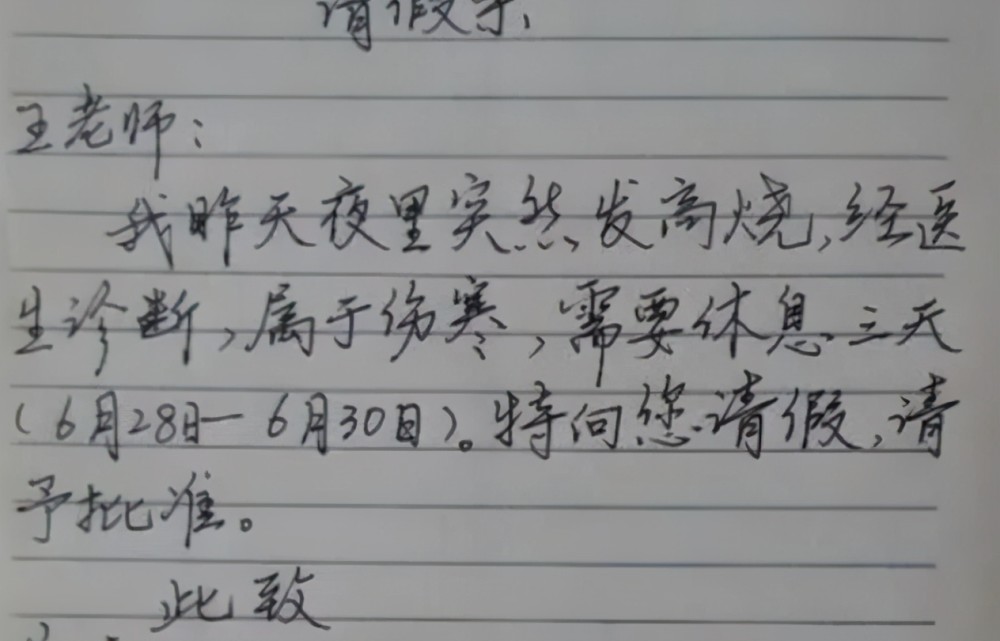 请假条
王老师：
我昨天夜里突然发高烧,经医
生诊断,属于伤寒,需要休息三天
(6月28日—6月30日)。特向您请假,请
予批准。
此致